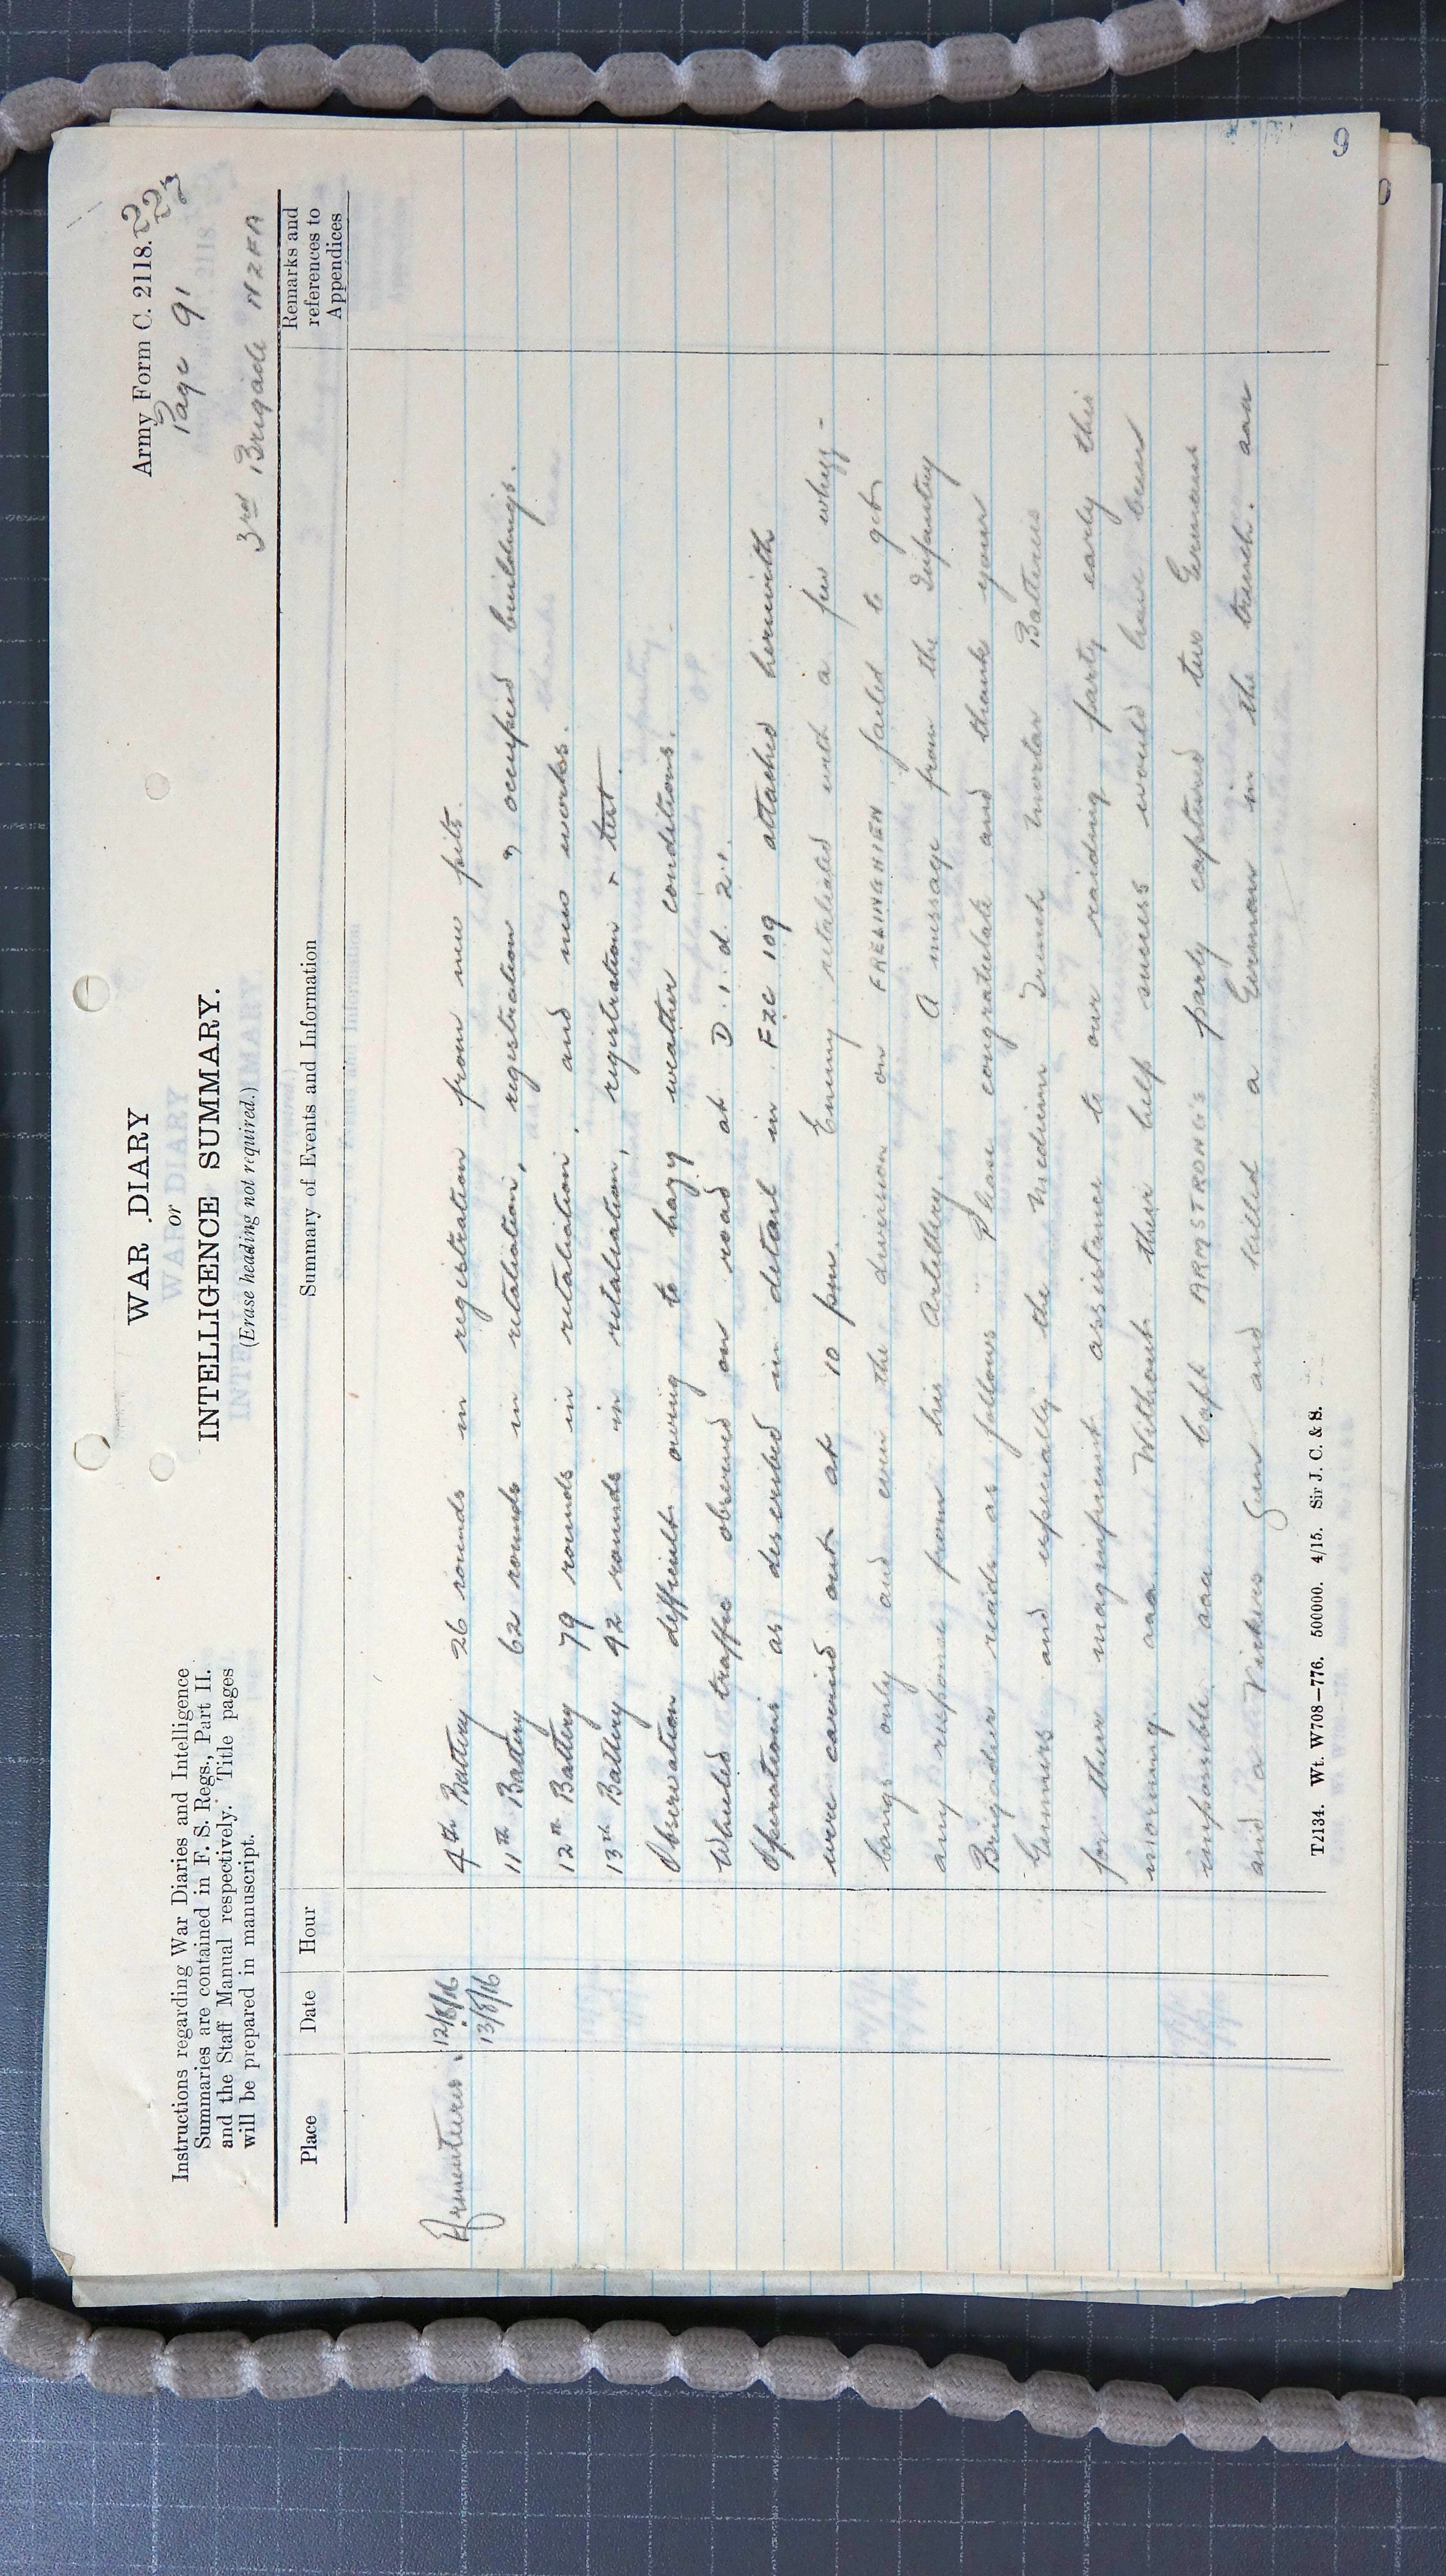 Army Form C. 2118.
227
Page 91
3rd Brigade NZFA
WAR DIARY
or
INTELLIGENCE SUMMARY.
(Erase heading not required.)
Instructions regarding War Diaries and Intelligence
Summaries are contained in F. S. Regs., Part II.
and the Staff Manual respectively. Title pages
will be prepared in manuscript.
Place Date Hour Summary of Events and Information Remarks and references to Appendices
Armentieres. 12/8/16 4th Battery 26 rounds in registration from new pits.
13/8/16 11th Battery 62 rounds in retaliation, registration & occupied buildings.
12th Battery 79 rounds in retaliation, and new works.
13th Battery 42 rounds in retaliation, registration + test.
Observation difficult owing to hazy weather conditions.
Wheeled traffic observed on road at D.1.d.2.1.
Operations as described in detail in FZC 109 attached herewith
were carried out at 10 pm. Enemy retaliated with a few whizz-
bangs only and even the diversion on FRELINGHIEN failed to get
any response from his Artillery. A message from the Infantry
Brigadier reads as follows Please congratulate and thank your
Gunners and especially the Medium Trench Mortar Batteries
for there magnificent assistance to our raiding party early this
morning aaa Without their help success would have been
impossible aaa Capt ARMSTRONG'S party captured two Germans
and a Vickers Gun and killed a German in the trench. aaa
T2134. Wt. W708—776. 500000. 4/15. Sir J. C. & S.
9